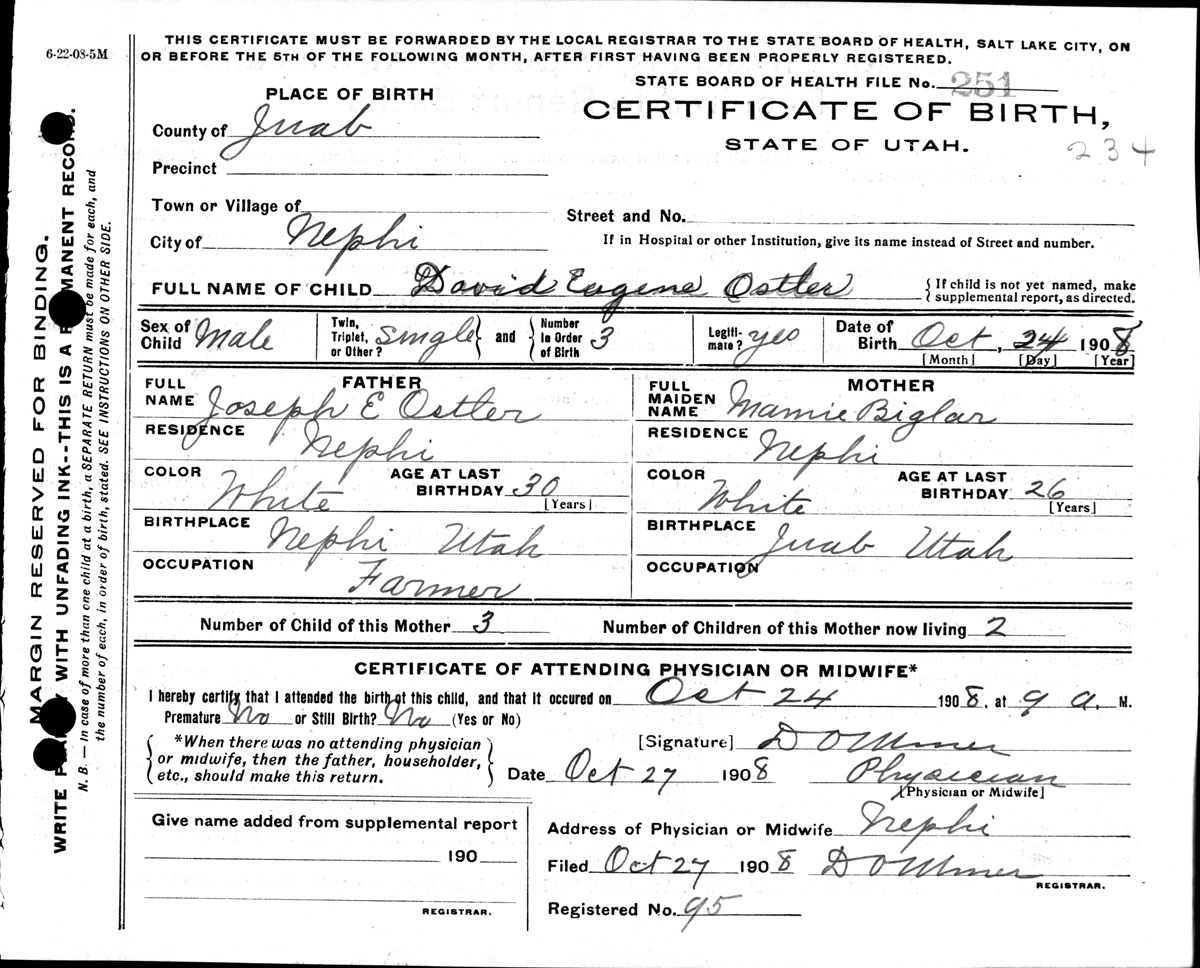 6-22-08-5M
THIS CERTIFICATE MUST BE FORWARDED BY THE LOCAL REGISTRAR TO THE STATE BOARD OF HEALTH, SALT LAKE CITY, ON
OR BEFORE THE 5TH OF THE FOLLOWING MONTH, AFTER FIRST HAVING BEEN PROPERLY REGISTERED.
STATE BOARD OF HEALTH FILE No. 251
PLACE OF BIRTH
CERTIFICATE OF BIRTH,
County of Juab
STATE OF UTAH.
234
Precinct
Town or Village of
Street and No.
City of Nephi
If in Hospital or other Institution, give its name instead of Street and number.
FULL NAME OF CHILD David Eugene Ostler
{ If child is not yet named, make
supplemental report, as directed.
Sex of
Child Male
Twin,
Triplet,
or Other? single } and { Number
in Order
of Birth 3
Legiti-
mate? yes
Date of
Birth Oct, 24 1908
[Month] [Day] [Year]
FATHER
FULL
NAME Joseph E Ostler
RESIDENCE Nephi
COLOR White
AGE AT LAST
BIRTHDAY 30
[Years]
BIRTHPLACE Nephi Utah
OCCUPATION Farmer
MOTHER
FULL
MAIDEN
NAME Mamie Biglar
RESIDENCE Nephi
COLOR White
AGE AT LAST
BIRTHDAY 26
[Years]
BIRTHPLACE Juab Utah
OCCUPATION
Number of Child of this Mother 3
Number of Children of this Mother now living 2
CERTIFICATE OF ATTENDING PHYSICIAN OR MIDWIFE*
I hereby certify that I attended the birth of this child, and that it occured on Oct 24 1908, at 9 a. M.
Premature No or Still Birth? No (Yes or No)
{ *When there was no attending physician
or midwife, then the father, householder,
etc., should make this return. }
[Signature]
Date Oct 27 1908
Physician
[Physician or Midwife]
Give name added from supplemental report
190
REGISTRAR.
Address of Physician or Midwife Nephi
Filed Oct 27 1908
REGISTRAR.
Registered No. 95
MARGIN RESERVED FOR BINDING.
WRITE WITH UNFADING INK--THIS IS A PERMANENT RECORD.
N. B. — In case of more than one child at a birth, a SEPARATE RETURN must be made for each, and
the number of each, in order of birth, stated. SEE INSTRUCTIONS ON OTHER SIDE.